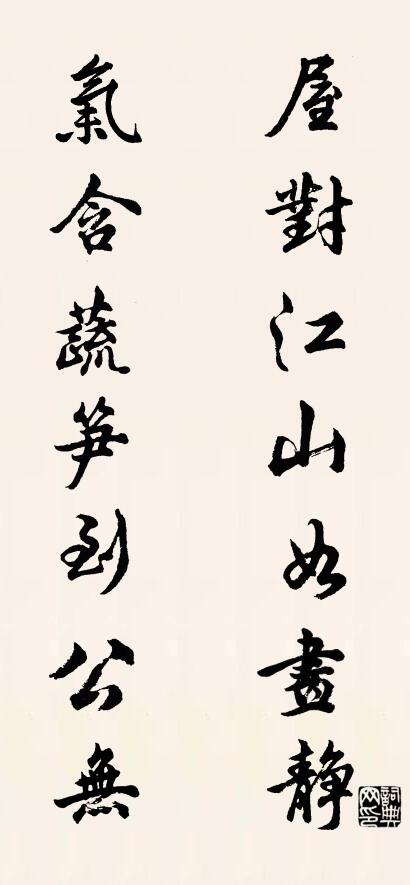 屋對江山如畫靜
氣含蔬笋到公無
詞典网印